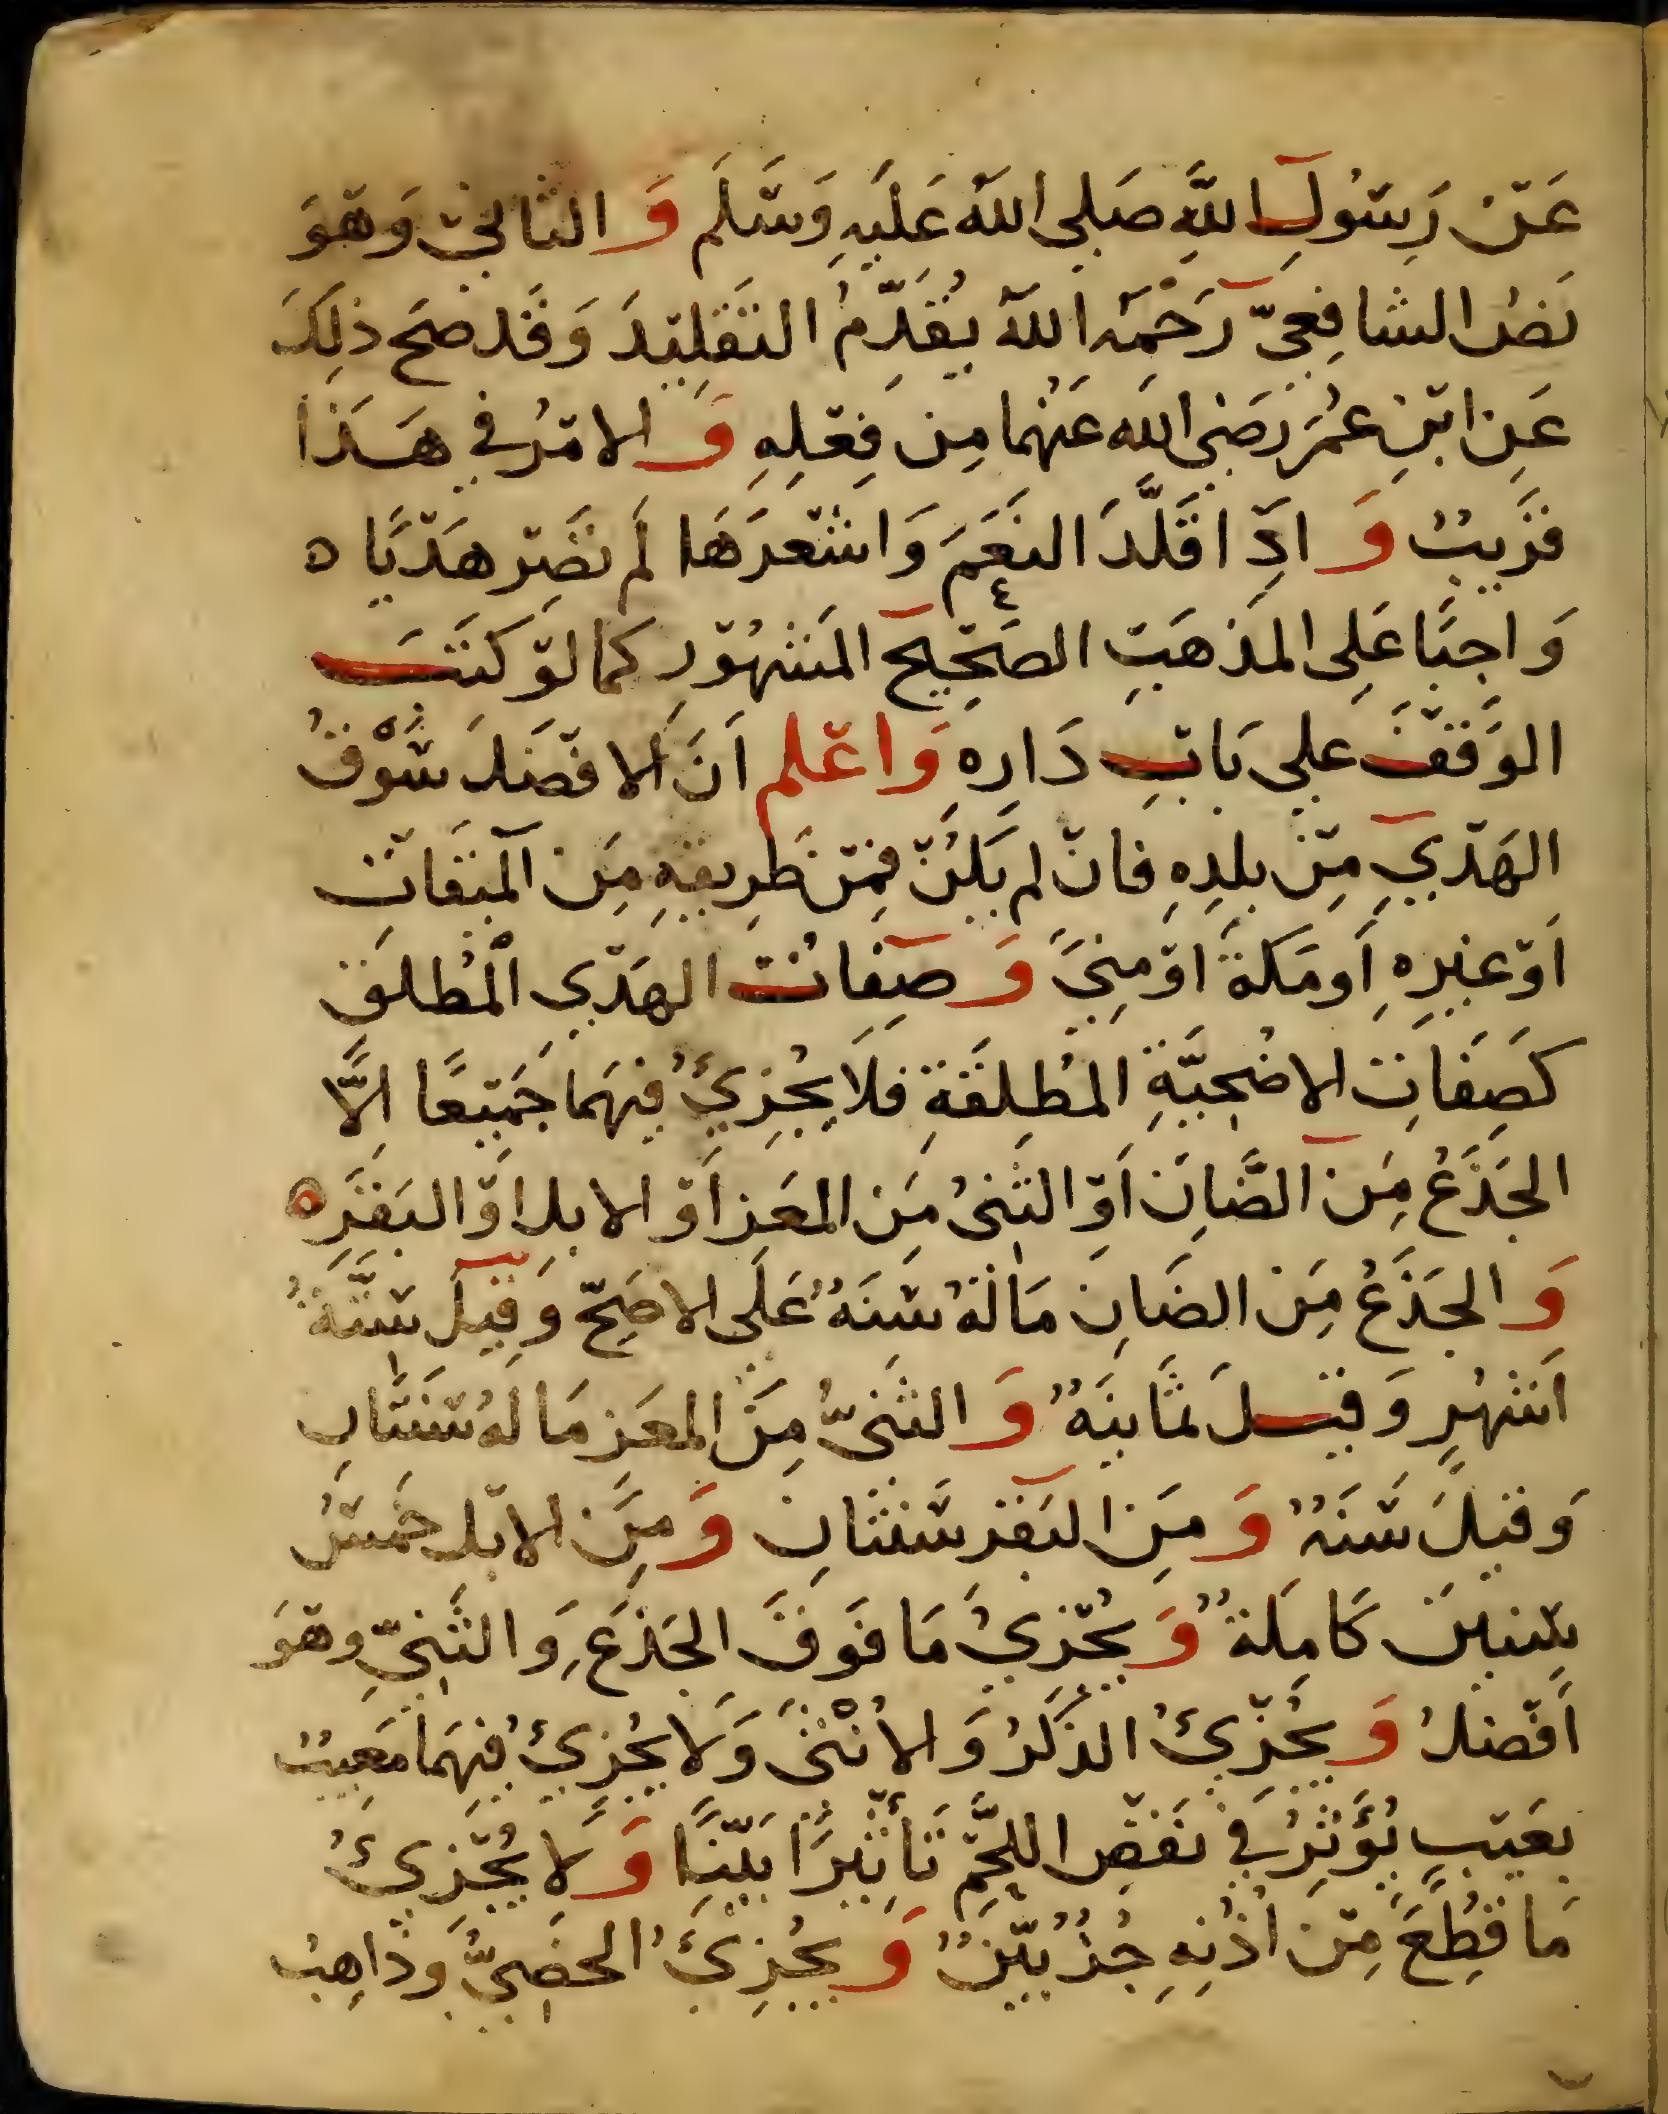 عَنْ رَسُولِ اللَّهِ صَلى اللهُ عَلَيهِ وَسَلَم وَالثاني وَهْوَ
نَصُ الشافِعِيّ رَحْمَهُ اللهُ يُقَدِّمُ التَقلِيْدَ وَقَد صَح ذلِكَ
عَنِ ابْنِ عُمَرَ رَضِيَ الله عَنْهُما مِن فِعْلِهِ وَالامْرُ في هَذا
قرَيبُ وَاذِا قَلَّدَ النعَمَ وَاشْعَرَهَا لَم تَصِرْ هَدْيًا ه
وَاجبًا عَلى المَذهَبِ الصَحِيحِ المَشهُوْرِ كما لوْ كَتَبَ
الوَقفَ على بَابِ دَارِهِ وَاعْلم اَنَ الافضَلَ سَوْقُ
الهَدْيِ مِنْ بلدِهِ فانْ لم يَكُنْ فمِنْ طَرِيقهِ مِنَ المَيقَات
اَوْ غيرِهِ اَو مَكةَ اوْ مِنىً وَصِفَاتُ الهَدْي الْمُطلَقِ
كَصِفَاتِ الاضْحِيَّةِ المُطلِقَةِ فلَا يُجْزِئُ فِيهَما جَمْيعًا الَّا
الجَذَعُ مِنَ الضَّانِ اَوِ الثَنيُ مَن المَعَزِ اَوْ الابلِ اوْ البَقَرَه
وَالجَذَعُ مِنَ الضَانِ مَا لهُ سَنَةٌ عَلَى الاصَحّ وَقِيْلَ سِتَّةُ
اَشهُرٍ وَقيْلَ ثمَانيَةٌ وَالثنَيّ مِنَ المعَز مَا لَهُ سَنتَانِ
وَقيلَ سَنَةٌ وَمِنَ البَقرِ سَنتَانِ وَمِنَ الابْلِ خمسُ
سِنينَ كَامِلَةٌ وَيُجْزِيُ مَا فَوقَ الجَذعَ وَالثَنِيّ وهْوَ
اَفْضلُ وَيُجْزِئُ الذَكَرُ وَالاُنْثى وَلا يُجْزِئُ فِيْهَما مَعِيبٌ
بعَيْبٍ يُؤَثِرُ في نَقصِ اللحْمِ تَأثيْرًا بَيّنًا وَلا يُجْزِئُ
مَا قُطِعَ مِنْ اُذْنِهِ جُزْ بَيّنٌ وَيُجْزِئُ الخَصِيُّ وَذَاهِبُ